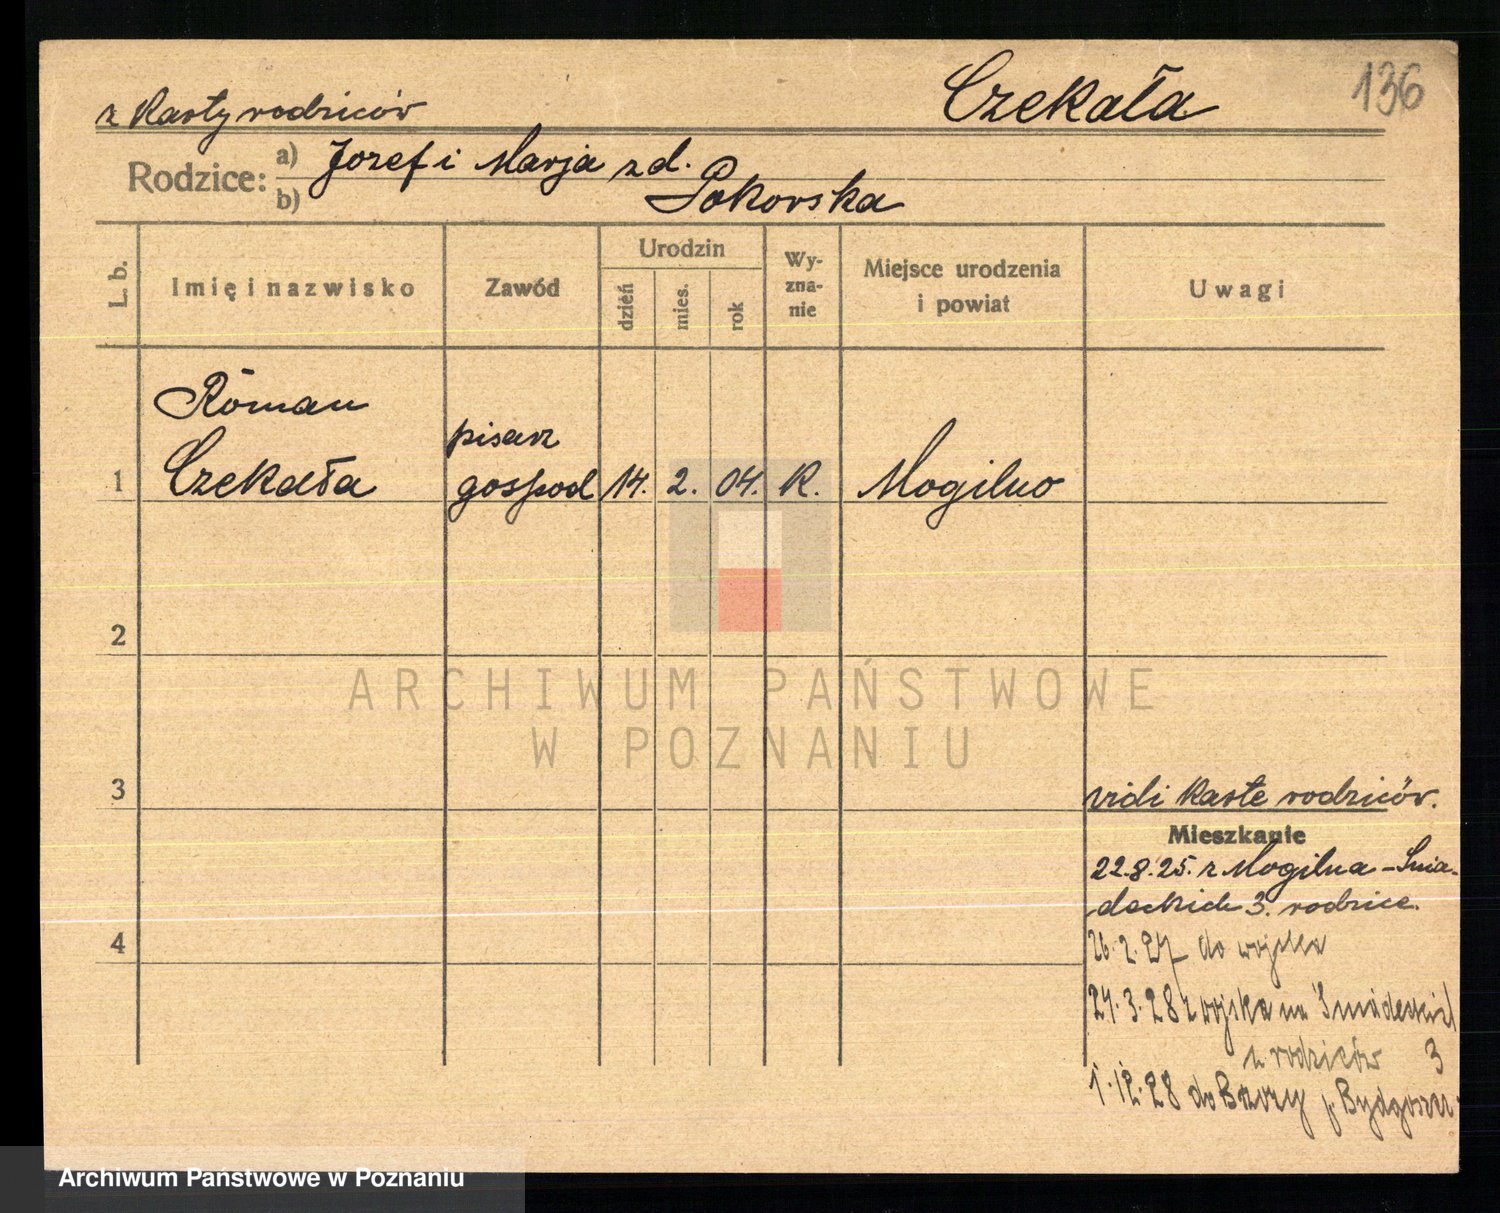 z Karty rodziców
Czekała
136
Rodzice: a) Jozef i Marja zd.
b) Sokorska
L. b.
Imię i nazwisko
Zawód
Urodzin
dzień
mies.
rok
Wy-
zna-
nie
Miejsce urodzenia
i powiat
Uwagi
Roman
pisarz
1 Czekała gospod 14. 2. 04. K. Mogilno
2
ARCHIWUM PAŃSTWOWE
W POZNANIU
3
vidi Kartę rodziców.
Mieszkanie
22.8.25. z Mogilna - Śnia-
deckich 3. rodzice.
4
26.2.27 do wojska
24.3.28 z wojska na Śniadeckich
u rodziców 3
1.12.28 do Brzozy p. Bydgoszcz
Archiwum Państwowe w Poznaniu